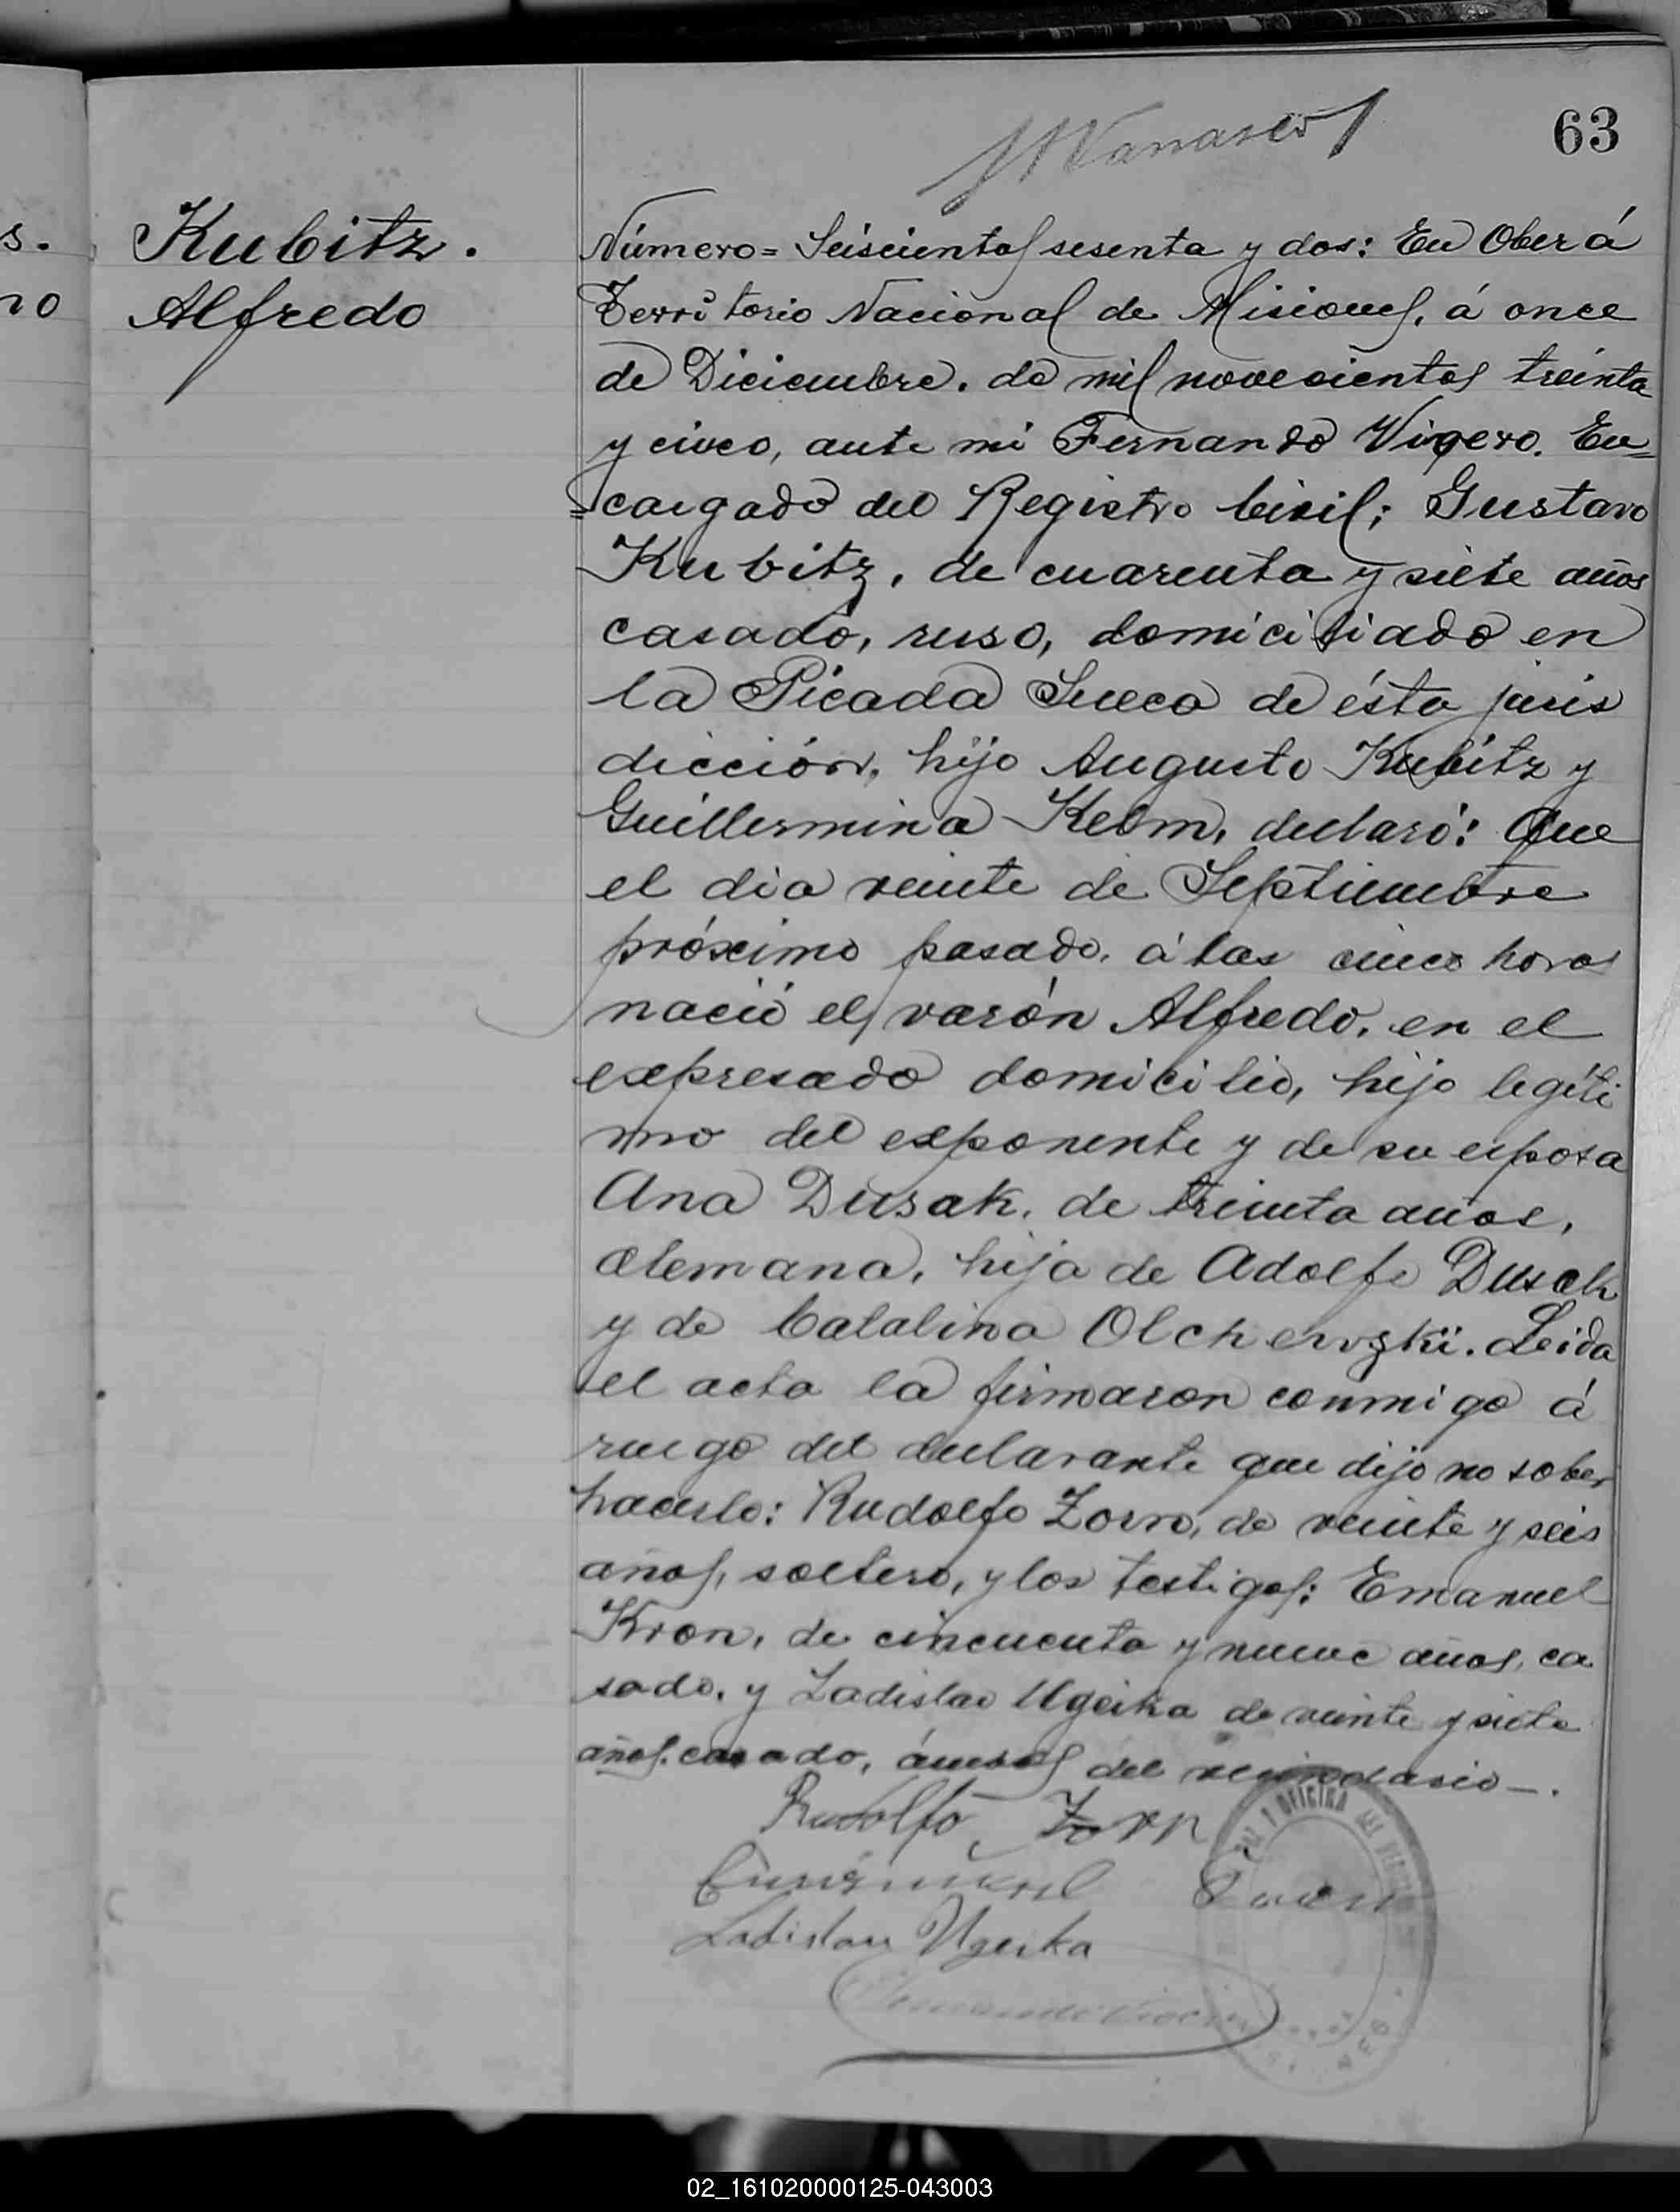 63
s.
no
Kubitz.
Alfredo
Número= Seiscientos sesenta y dos: En Oberá
Territorio Nacional de Misiones, á once
de Diciembre, de mil novecientos treinta
y cinco, ante mi Fernando Vigero. En=
=cargado del Registro Civil; Gustavo
Kubitz, de cuarenta y siete años
casado, ruso, domiciliado en
la Picada Sueca de ésta juris
dicción, hijo Augusto Kubitz y
Guillermina Kelm, declaró: Que
el dia veinte de Septiembre
próximo pasado, á las cinco horas
nació el varón Alfredo, en el
expresado domicilio, hijo legíti
mo del exponente y de su esposa
Ana Dusak, de treinta años,
alemana, hija de Adolfo Dusak
y de Catalina Olchervzki. Leida
el acta la firmaron conmigo á
ruego del declarante que dijo no saber
hacerlo: Rudolfo Zorn, de veinte y seis
años, soltero, y los testigos: Emanuel
Kron, de cincuenta y nueve años, ca
sado, y Ladislao Ugeika de veinte y siete
años. casado, ámbos del vecindario—.
Rudolfo Zorn
Ladislau Ugeika
OFICINA
02_161020000125-043003